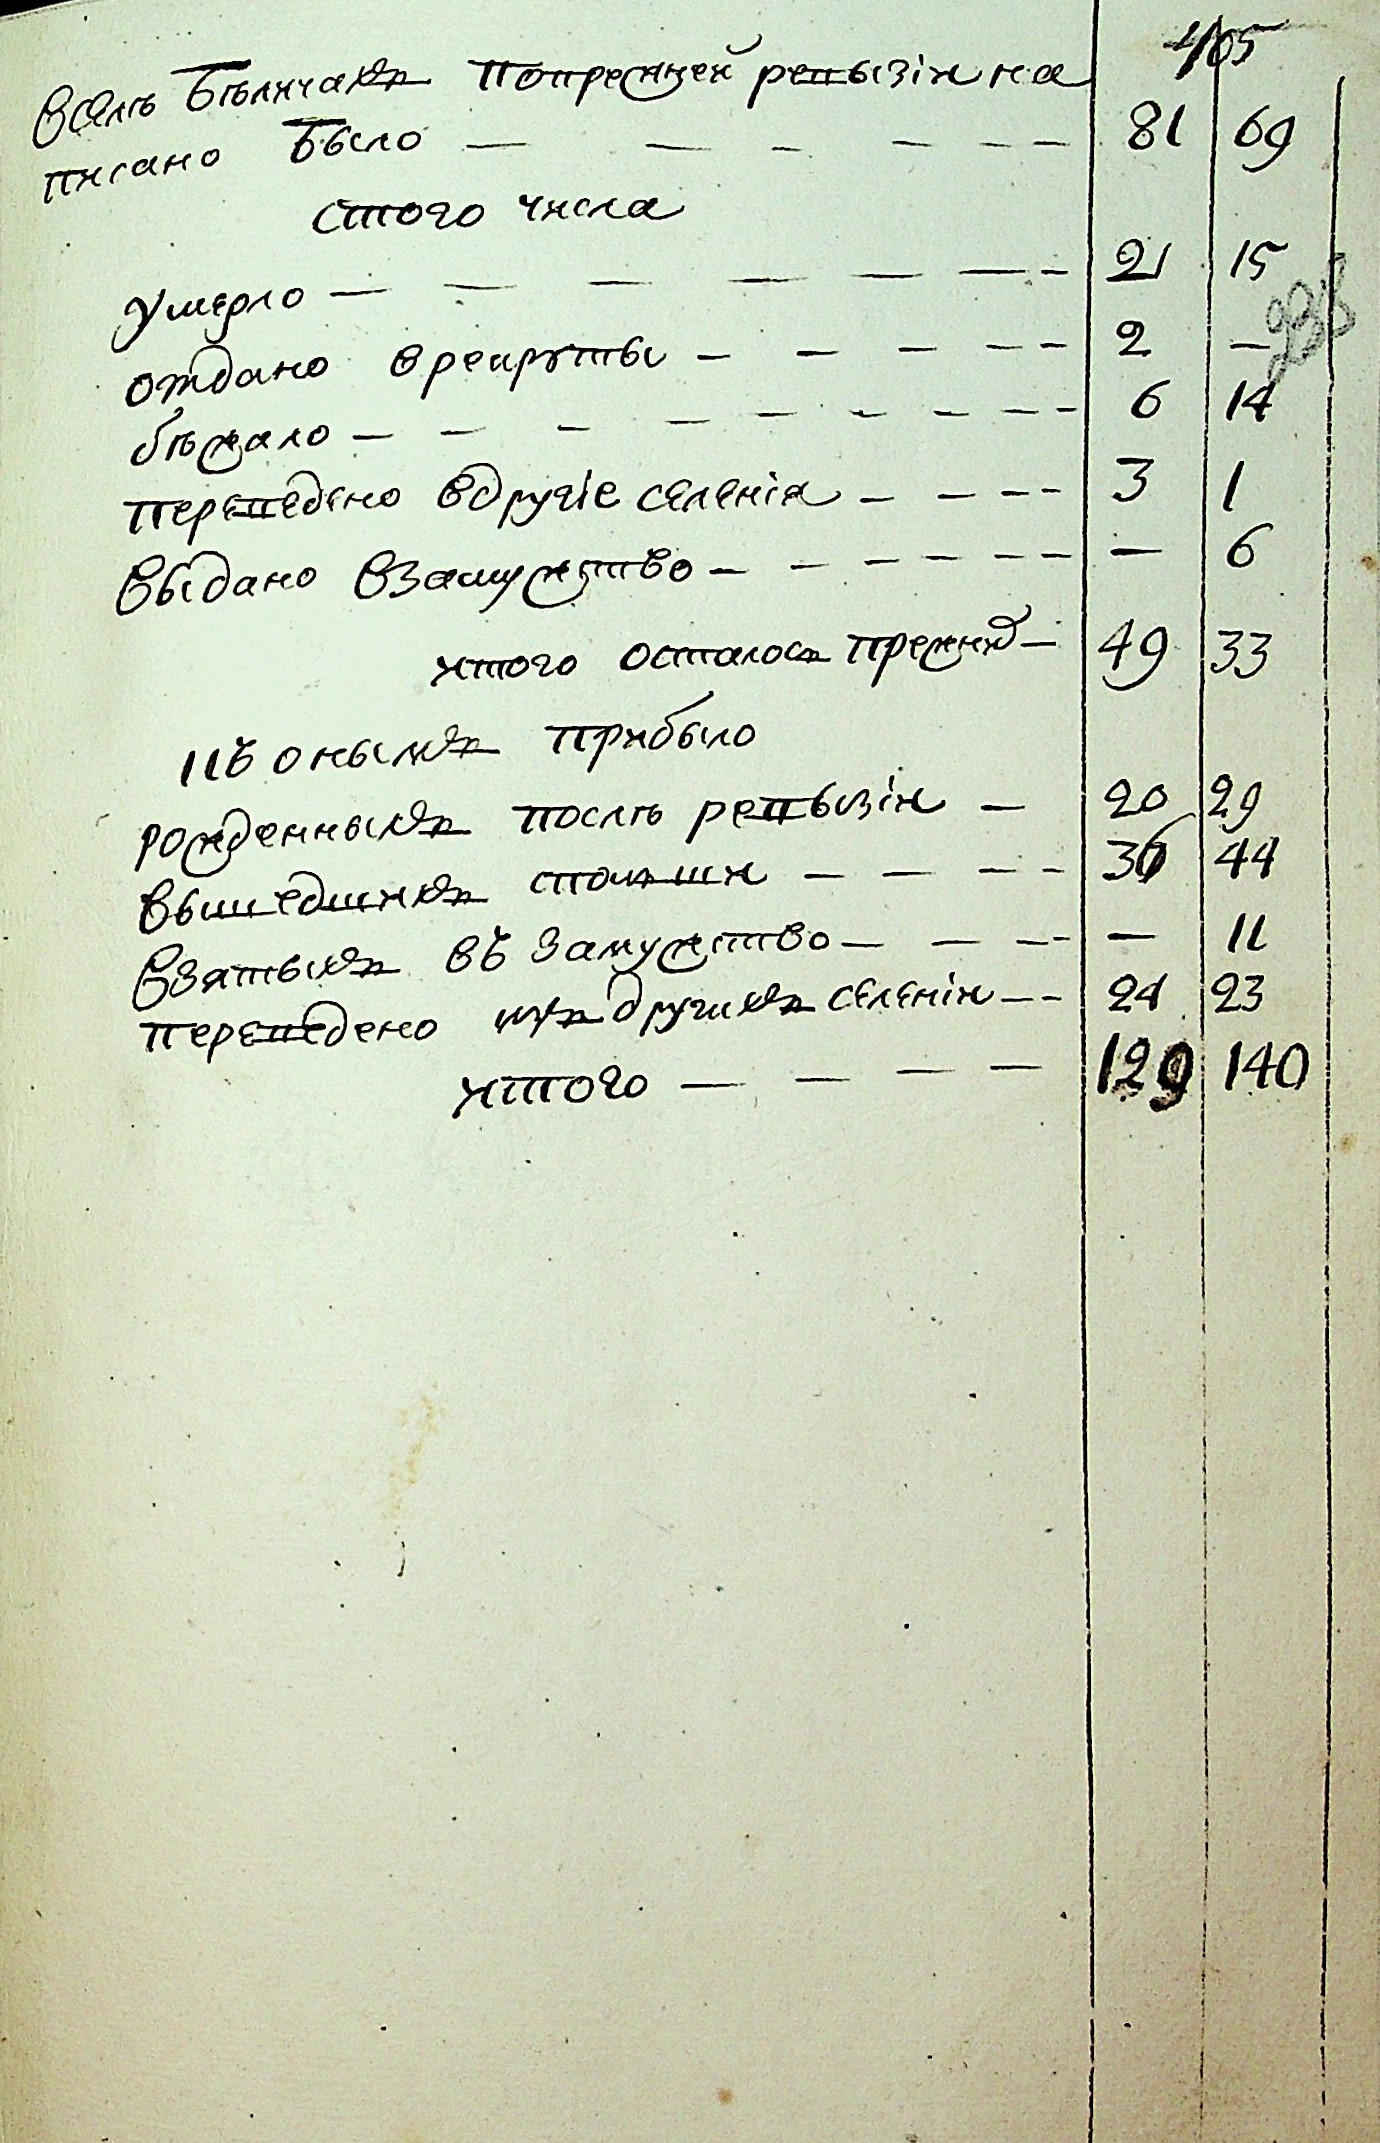 405
Вселѣ Бѣличахъ попрежней ревызіи на
писано было — — — — — — 81 69
стого числа
умерло — — — — — — 21 15
отдано врекруты — — — — — 2 —
бѣжало — — — — — — — 6 14
переведено вдругіе селенія — — — — 3 1
выдано взамужство — — — — — — — 6
итого осталось прежнихъ — 49 33
къ онымъ прибыло
рожденныхъ послѣ ревызіи — 20 29
вышедшихъ спольши — — — — 36 44
взятыхъ въ замужство — — — — — 11
переведено изъ другихъ селеніи — — 24 23
итого — — — — 129 140